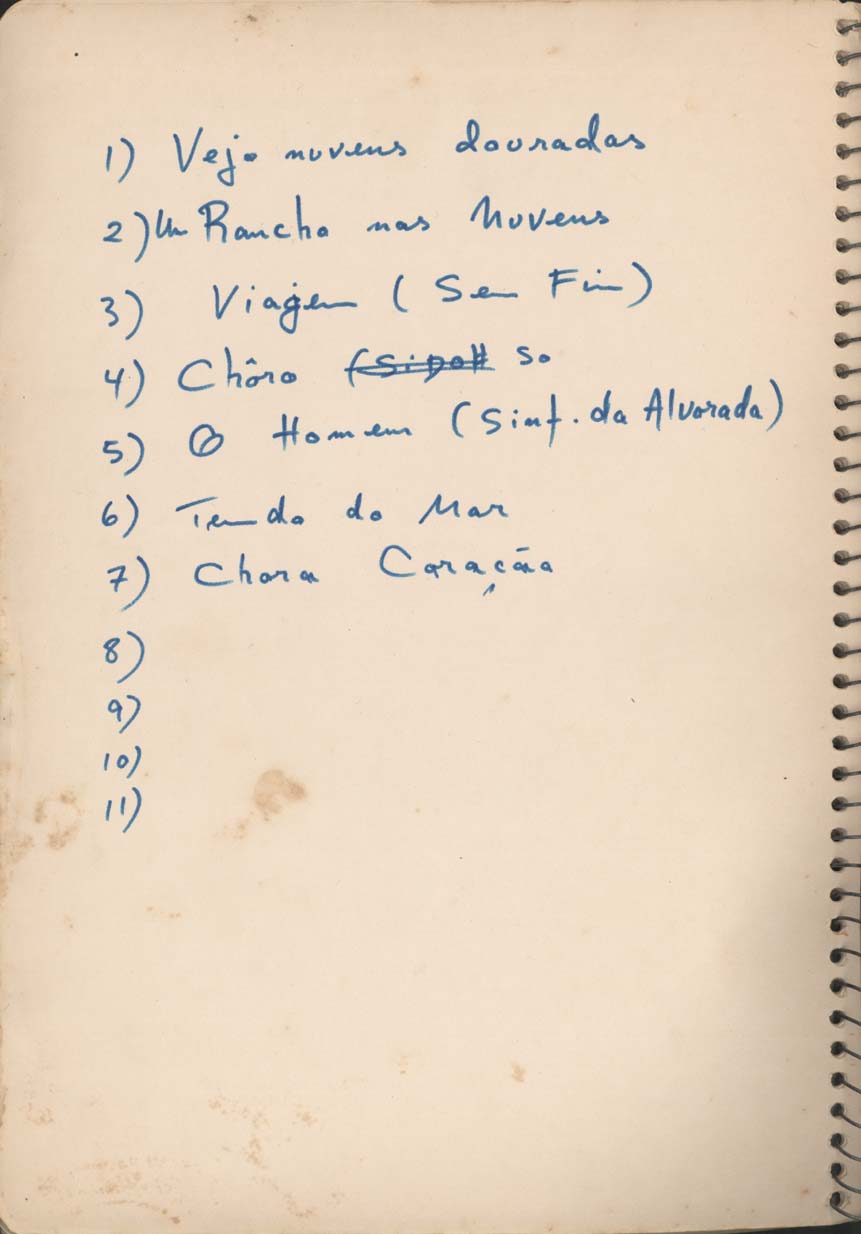 1) Vejo nuvens douradas
2) Um Rancho nas Nuvens
3) Viagem (Sem Fim)
4) Chôro so
5) O Homem (Sinf. da Alvorada)
6) Tenda do Mar
7) Chora Coração
8)
9)
10)
11)